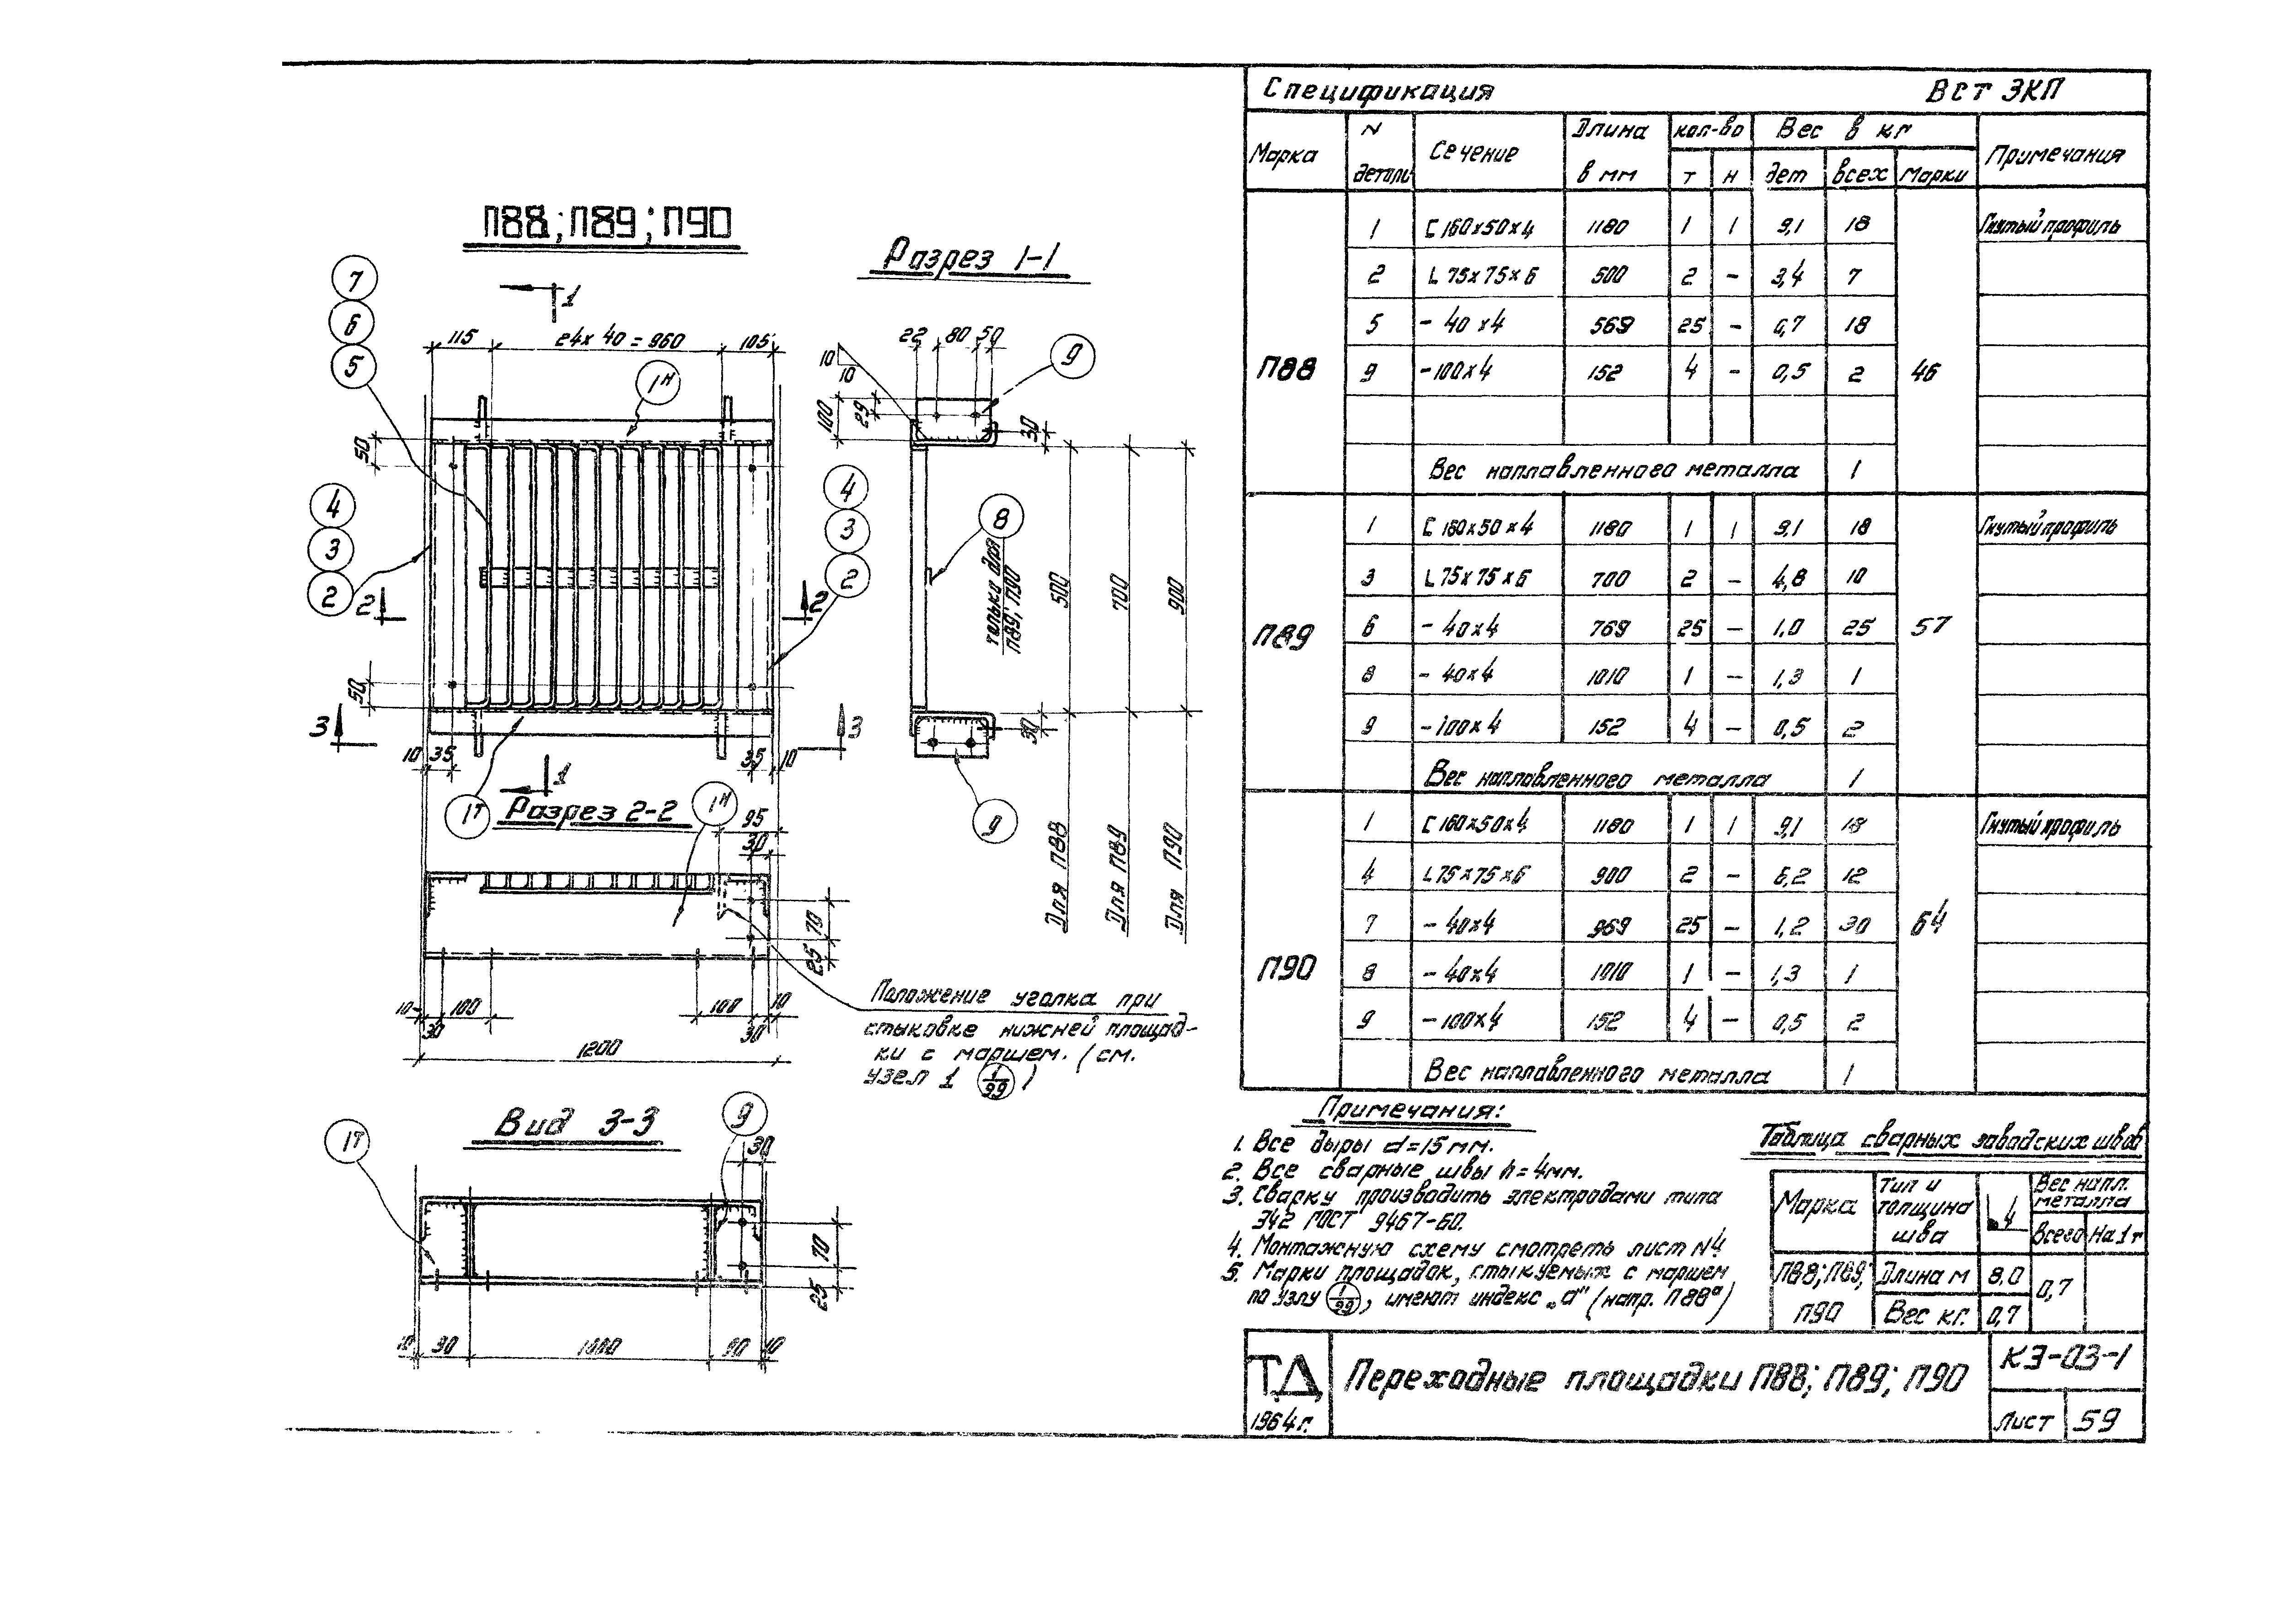 П88; П89; П90
Разрез 1-1
7
6
5
1
115
24х 40 = 960
105
1н
22 80 50
9
10
10
100
29
30
50
4
3
2
2
4
3
2
2
8
только для
П89; П90
500
700
900
50
3
3
30
10 35
35 10
1
1т
Разрез 2-2
1н
95
9
30
Для П88
Для П89
Для П90
70
25
10 100
100 10
30
30
1200
Положение уголка при
стыковке нижней площад-
ки с маршем. (см.
узел 1 1/99)
Вид 3-3
9
1т
30
70
25
10 90 1000 90 10
Спецификация ВСт 3КП
Марка N детали Сечение Длина в мм кол-во Вес в кг Примечания
т н дет всех марки
П88 46
1 С 160х50х4 1180 1 1 9,1 18 Гнутый профиль
2 L 75х75х6 500 2 – 3,4 7
5 – 40х4 569 25 – 0,7 18
9 – 100х4 152 4 – 0,5 2
Вес наплавленного металла 1
П89 57
1 С 160х50х4 1180 1 1 9,1 18 Гнутый профиль
3 L 75х75х6 700 2 – 4,8 10
6 – 40х4 769 25 – 1,0 25
8 – 40х4 1010 1 – 1,3 1
9 – 100х4 152 4 – 0,5 2
Вес наплавленного металла 1
П90 64
1 С 160х50х4 1180 1 1 9,1 18 Гнутый профиль
4 L 75х75х6 900 2 – 6,2 12
7 – 40х4 969 25 – 1,2 30
8 – 40х4 1010 1 – 1,3 1
9 – 100х4 152 4 – 0,5 2
Вес наплавленного металла 1
Примечания:
1. Все дыры d=15мм.
2. Все сварные швы h=4мм.
3. Сварку производить электродами типа
Э42 ГОСТ 9467-60.
4. Монтажную схему смотреть лист N4
5. Марки площадок, стыкуемых с маршем
по узлу 1/99, имеют индекс „а" (напр. П88а)
Таблица сварных заводских швов
Марка Тип и толщина шва 4 Вес напл. металла
Всего На 1т
П88; П89; П90 Длина м 8,0 0,7
Вес кг. 0,7
ТД
1964г.
Переходные площадки П88; П89; П90
КЭ-03-1
Лист 59